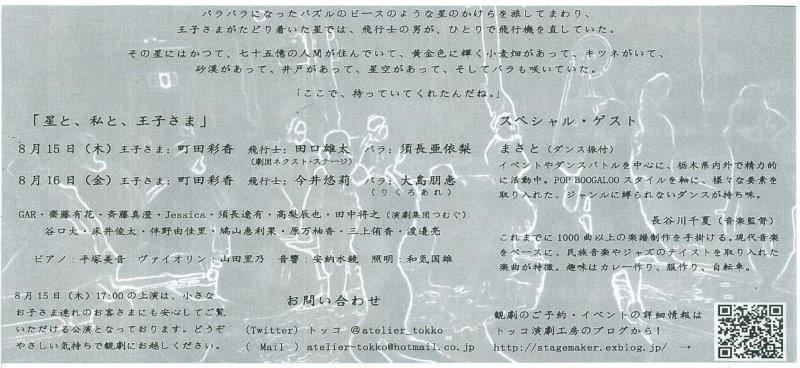 バラバラになったパズルのピースのような星のかけらを旅してまわり、
王子さまがたどり着いた星では、飛行士の男が、ひとりで飛行機を直していた。
その星にはかつて、七十五億の人間が住んでいて、黄金色に輝く小麦畑があって、キツネがいて、
砂漠があって、井戸があって、星空があって、そしてバラも咲いていた。
「ここで、待っていてくれたんだね。」
「星と、私と、王子さま」
8月15日（木）王子さま：町田彩香 飛行士：田口雄太 バラ：須長亜依梨
（劇団ネクスト・ステージ）
8月16日（金）王子さま：町田彩香 飛行士：今井悠莉 バラ：大島朋恵
（りくろあれ）
GAR・齋藤有花・斉藤真澄・Jessica・須長遼有・高梨辰也・田中将之（演劇集団つむぐ）
谷口大・床井俊太・伴野由佳里・鳩山恵利果・原万柚香・三上侑香・渡邉亮
ピアノ：平塚美音 ヴァイオリン：山田里乃 音響：安納水鏡 照明：和気国雄
8月15日（木）17:00の上演は、小さな
お子さま連れのお客さまにも安心してご覧
いただける公演となっております。どうぞ
やさしい気持ちで観劇にお越しください。
お問い合わせ
(Twitter) トッコ @atelier_tokko
( Mail ) atelier-tokko@hotmail.co.jp
スペシャル・ゲスト
まさと（ダンス振付）
イベントやダンスバトルを中心に、栃木県内外で精力的
に活動中。POP BOOGALOOスタイルを軸に、様々な要素を
取り入れた、ジャンルに縛られないダンスが持ち味。
長谷川千夏（音楽監督）
これまでに1000曲以上の楽譜制作を手掛ける。現代音楽
をベースに、民族音楽やジャズのテイストを取り入れた
楽曲が特徴。趣味はカレー作り、服作り、自転車。
観劇のご予約・イベントの詳細情報は
トッコ演劇工房のブログから！
http://stagemaker.exblog.jp/ →